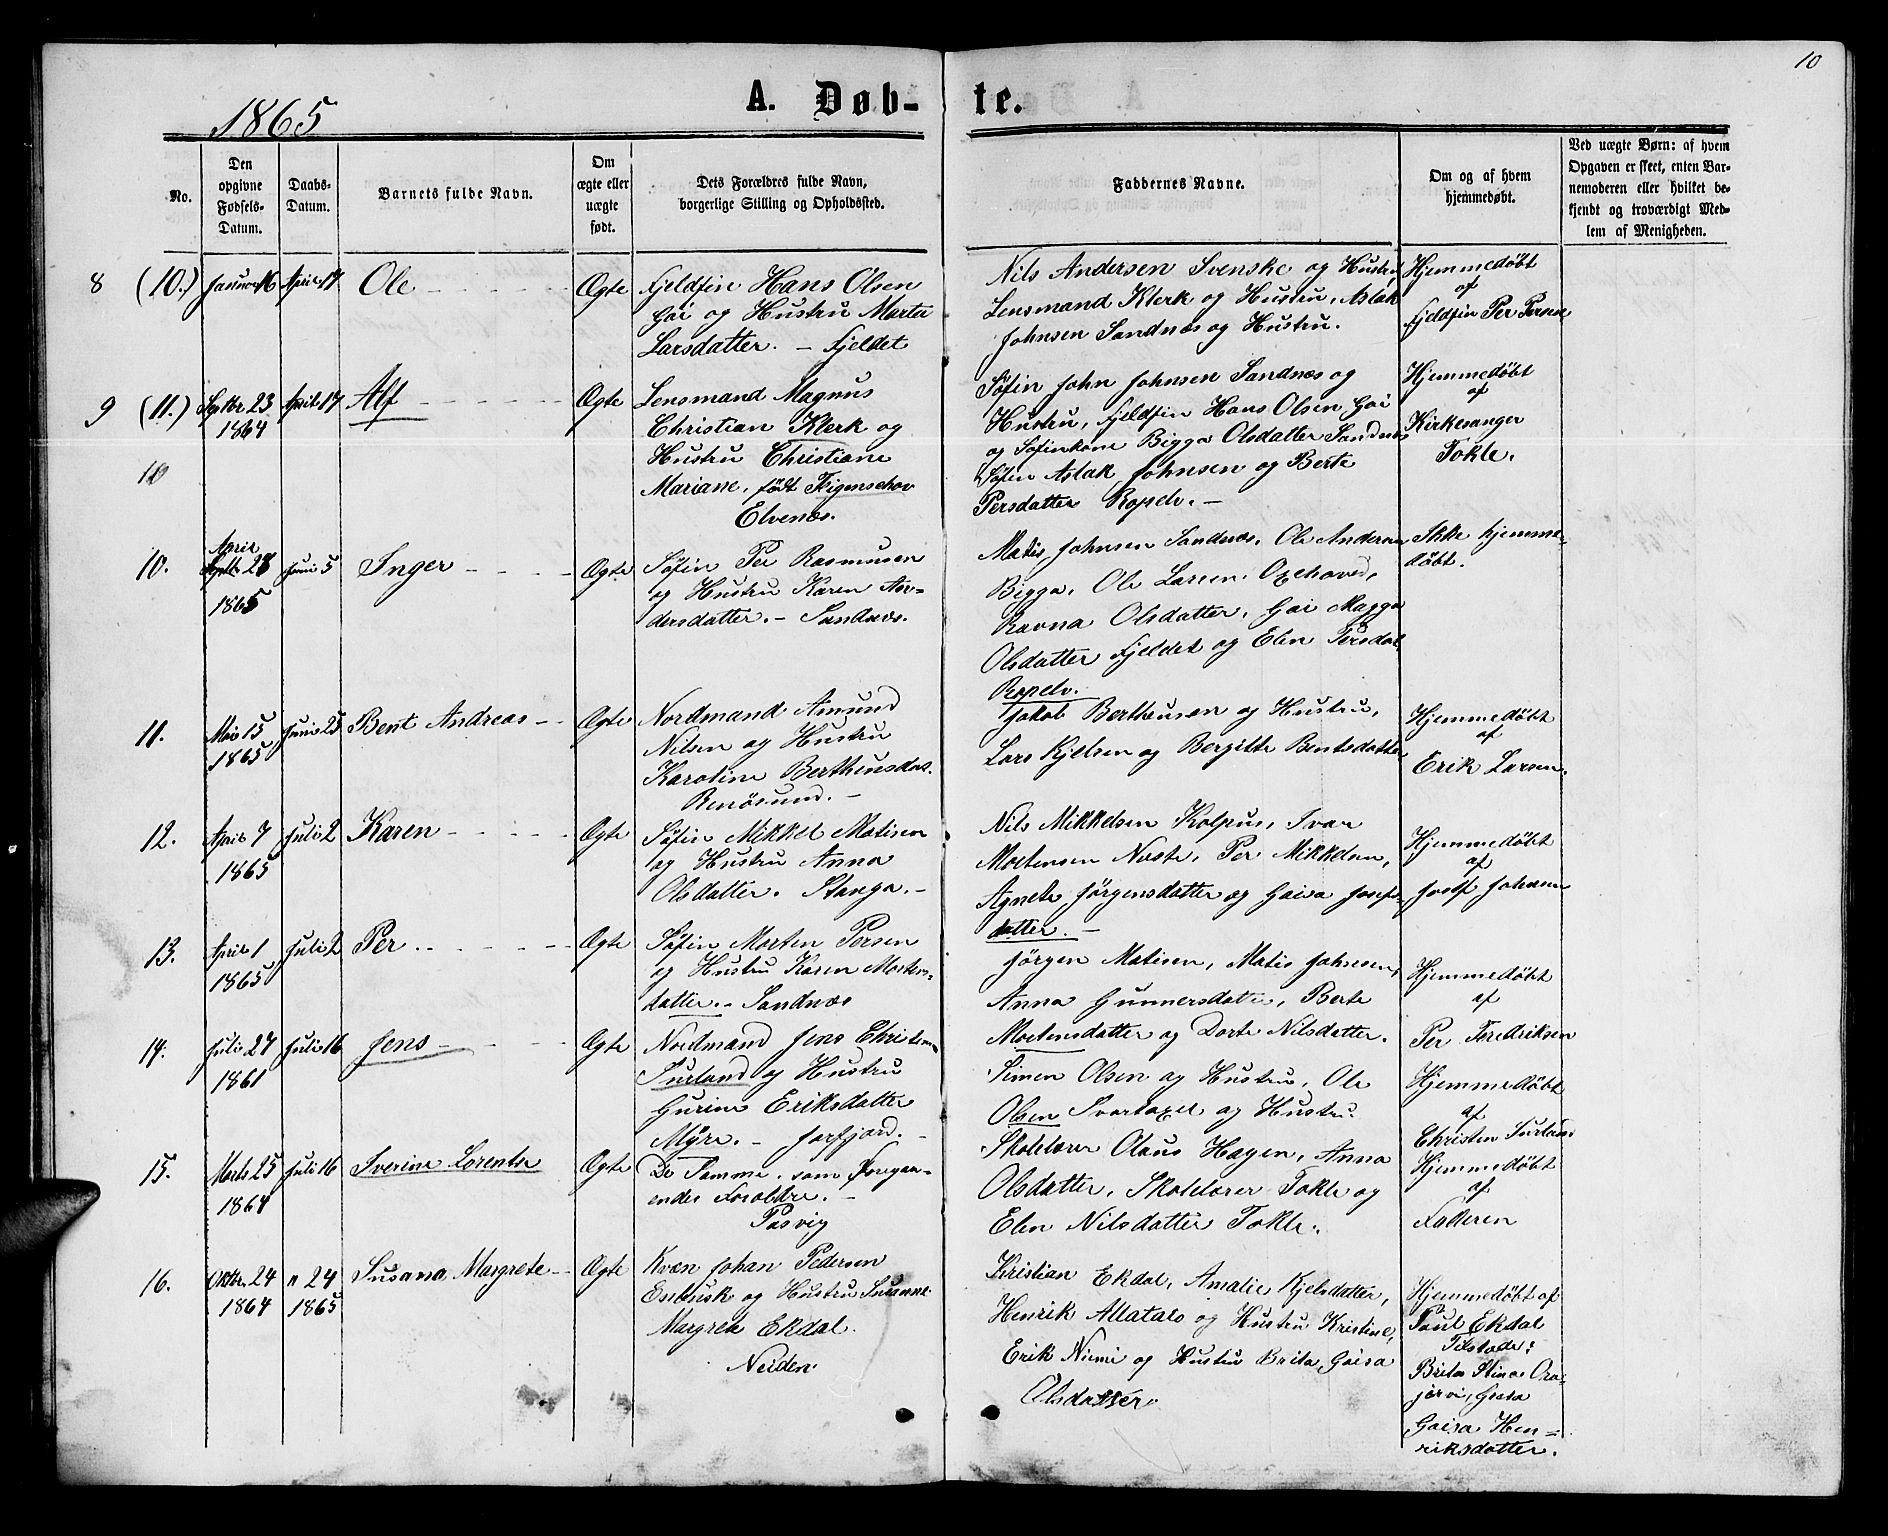 10
1865
A. Døb-
te.
No.
Den
opgivne
Fødsels-
Datum.
Daabs-
Datum.
Barnets fulde Navn.
Om
ægte eller
uægte
født.
Dets Forældres fulde Navn,
borgerlige Stilling og Opholdssted.
Faddernes Navne.
Om og af hvem
hjemmedøbt.
Ved uægte Børn: af hvem
Opgaven er skeet, enten Bar-
nemoderen eller hvilket be-
kjendt og troværdigt Med-
lem af Menigheden.
8 (10.) Januar 16 April 17 Ole Ægte
Fjeldfin Hans Olsen
Gai og Hustru Marta
Larsdatter. - Fjeldet
Nils Andersen Svenske og Hustru,
Lensmand Klerk og Hustru, Aslak
Johnsen Sandnæs og Hustru.
Hjemmedøbt
af
Fjeldfin Per Persen
9 (11.) Septbr 23 April 17 Alf Ægte
1864
10
Lensmand Magnus
Christian Klerk og
Hustru Christiane
Mariane, født
Elvenæs.
Søfin John Johnsen Sandnæs og
Hustru, Fjeldfin Hans Olsen Gai
og Søfinkone Bigga Olsdatter Sandnæs
Søfin Aslak Johnsen og Berte
Persdatter Ropelv. -
Hjemmedøbt
af
Kirkesanger
Tokle.
10. April 28 Juni 5 Inger Ægte
1865
Søfin Per Rasmussen
og Hustru Karen An-
dersdatter. - Sandnæs.
Matis Johnsen Sandnæs, Ole Andersen
Bigga, Ole Larsen Oxehoved,
Ravna Olsdatter, Gai Magga
Olsdatter Fjeldet og Elen Persdat
Ropelv.
Ikke hjemme-
døbt.
11. Mai 15 Juni 25 Bent Andreas Ægte
1865
Nordmand Amund
Nilsen og Hustru
Karoline Bertheusdat.
Renøsund. -
Jakob Bertheusen og Hustru,
Lars Kjelsen og Bergitte Bentsdatter
Hjemmedøbt
af
Erik Larsen.
12. April 7 Juli 2 Karen Ægte
1865
Søfin Mikkel Matisen
og Hustru Anna
Olsdatter. Stanga. -
Nils Mikkelsen Kolpus, Ivar
Mortensen Næste, Per Mikkelsen,
Agnete Jørgensdatter og Gaisa Josefs-
datter. -
Hjemmedøbt
af
Josef Johnsen
13. April 1 Juli 2 Per Ægte
1865
Søfin Morten Persen
og Hustru Karen Mortens-
datter. - Sandnæs
Jørgen Matisen, Matis Johnsen,
Anna Gunnersdatter, Berte
Mortensdatter og Dorte Nilsdatter.
Hjemmedøbt
af
Per Feredriksen
14. Juli 27 Juli 16 Jens Ægte
1861
Nordmand Jens Christen
Surland og Hustru
Gurine Eriksdatter
Myre. - Jarfjord. -
Simen Olsen og Hustru, Ole
Olsen Svartaxel og Hustru.
Hjemmedøbt
af
Christen Surland
15. Marts 25 Juli 16 Iverine Lorentse Ægte
1864
De Samme, som Foregaa-
endes Forældre. -
Pasvig
Skolelærer Olaus Hagen, Anna
Olsdatter, Skolelærer Tokle og
Elen Nilsdatter Tokle.
Hjemmedøbt
af
Faderen
16. Oktbr. 24 " 24 Susana Margrete Ægte
1864 1865
Kvæn Johan Pedersen
Esebusk og Hustru Susanne
Margrete Ekdal.
Neiden.
Kristian Ekdal, Amalie Kjelsdatter,
Henrik Allatalo og Hustru Kristine,
Erik Niemi og Hustru Brita, Gaisa
Olsdatter.
Hjemmedøbt af
Paul Ekdal
Tilstede:
Brita Stina Ora-
järvi, Greta
Gaisa Hen-
riksdatter.